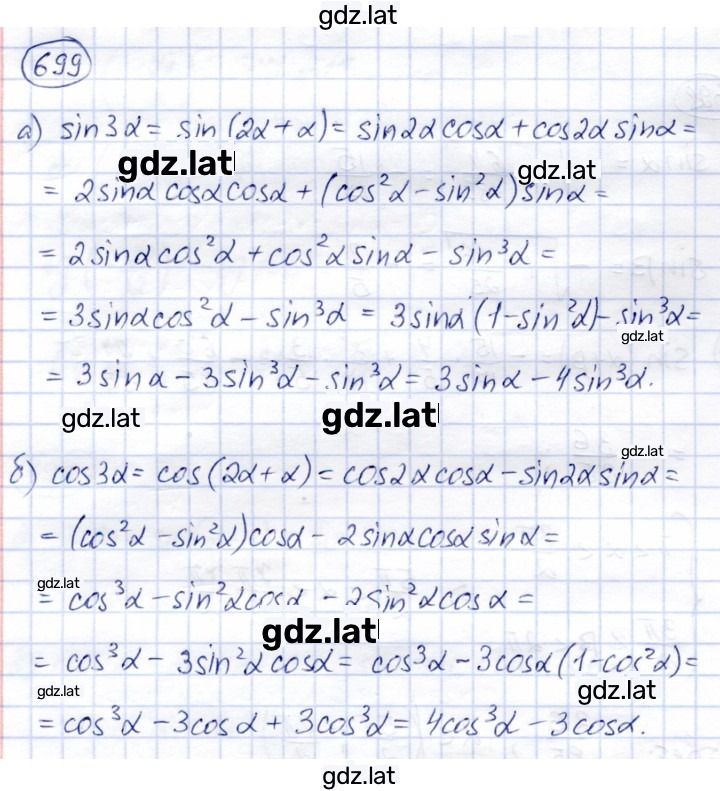 gdz.lat
699
а) sin3α = sin(2α+α) = sin2αcosα + cos2αsinα =
gdz.lat
gdz.lat
= 2sinαcosαcosα + (cos²α – sin²α)sinα =
= 2sinαcos²α + cos²αsinα – sin³α =
= 3sinαcos²α – sin³α = 3sinα(1–sin²α)–sin³α =
gdz.lat
= 3sinα – 3sin³α – sin³α = 3sinα – 4sin³α.
gdz.lat
gdz.lat
gdz.lat
б) cos3α = cos(2α+α) = cos2αcosα – sin2αsinα =
= (cos²α – sin²α)cosα – 2sinαcosαsinα =
gdz.lat
= cos³α – sin²αcosα – 2sin²αcosα =
gdz.lat
= cos³α – 3sin²αcosα = cos³α – 3cosα(1–cos²α) =
gdz.lat
gdz.lat
= cos³α – 3cosα + 3cos³α = 4cos³α – 3cosα.
gdz.lat